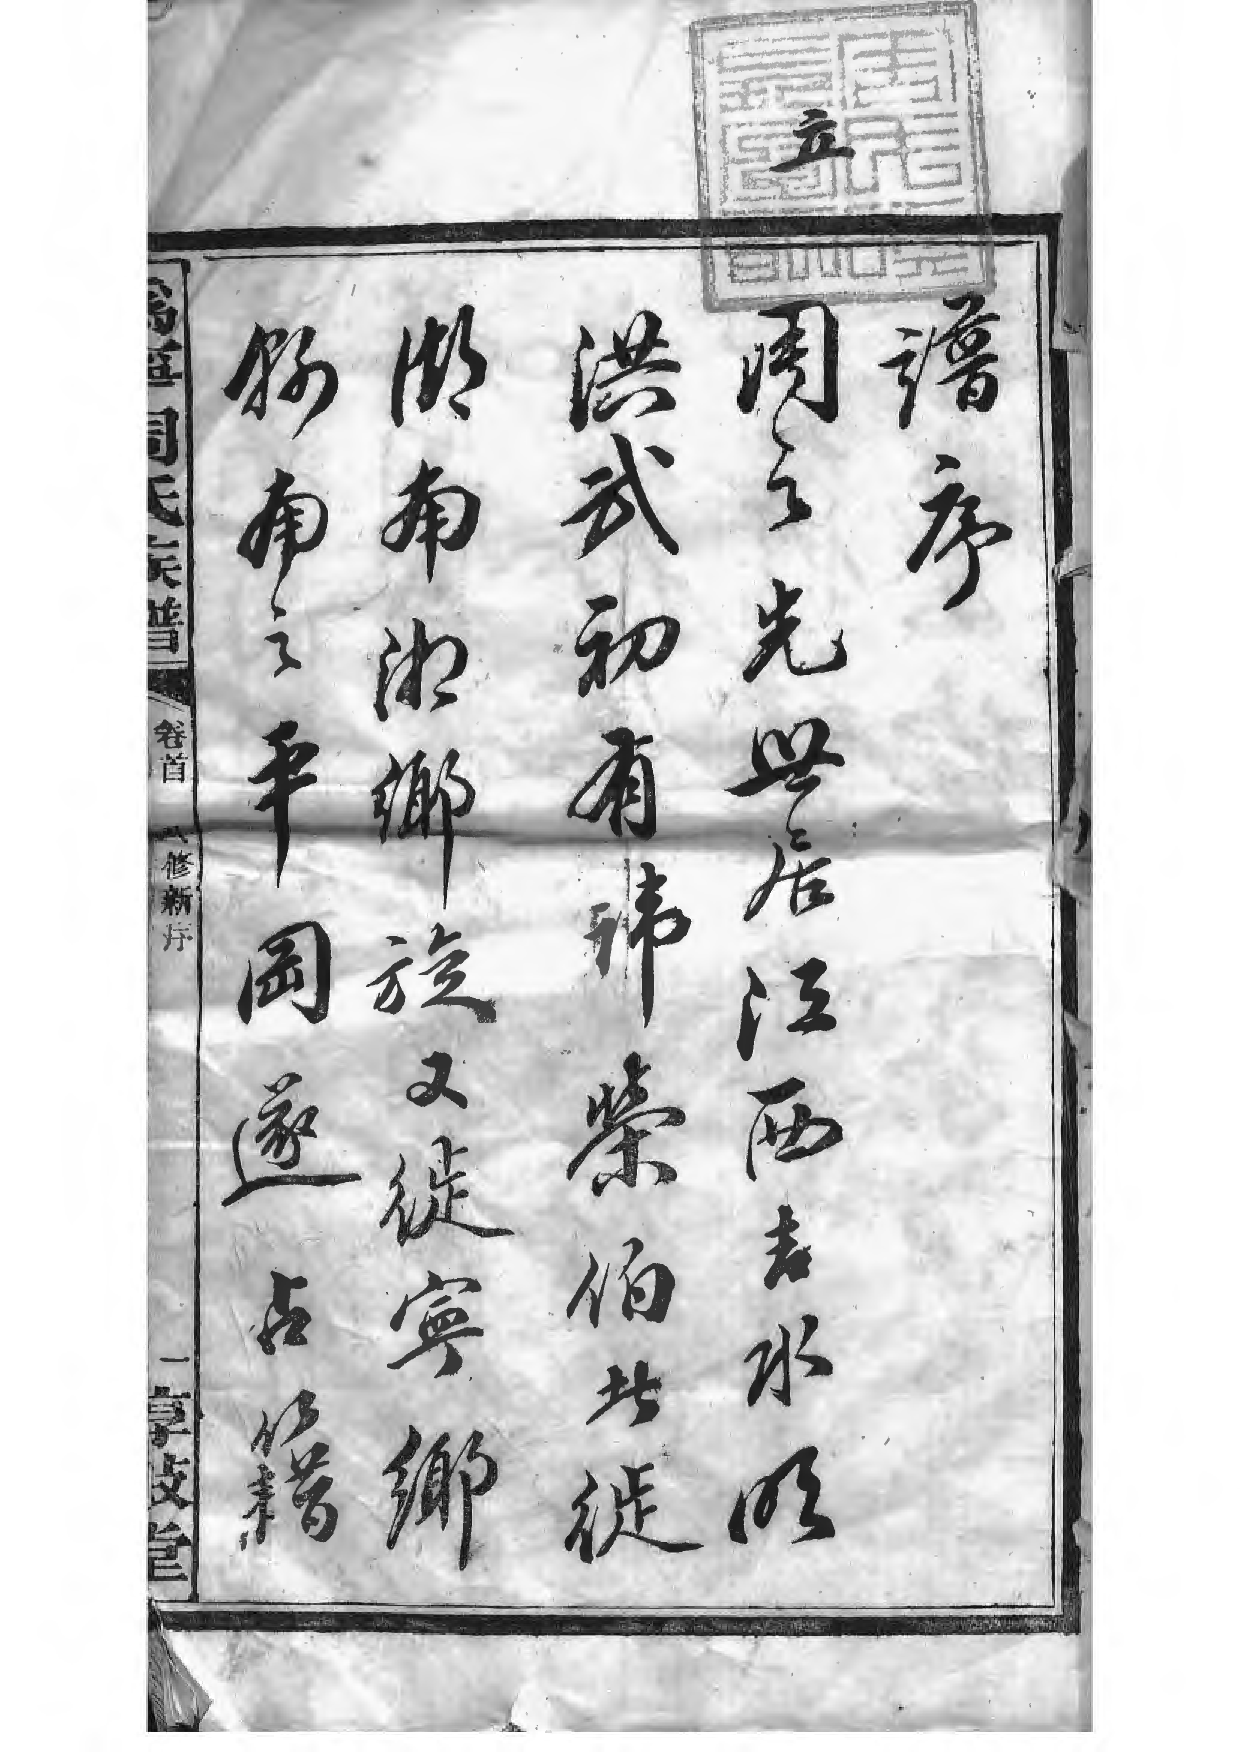 立
譜序
周之先世居江西吉水明
洪武初有諱榮伯徙
湖南湘鄉旋又徙寧鄉
縣南之平岡遂占籍
溈寧周氏族譜
卷首
八修新序
一
堂